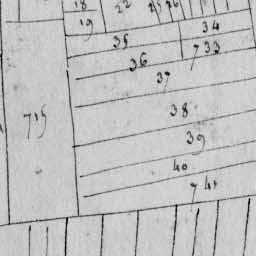 18 22 25 26
19 34
35 733
36
37
715 38
39
40
741